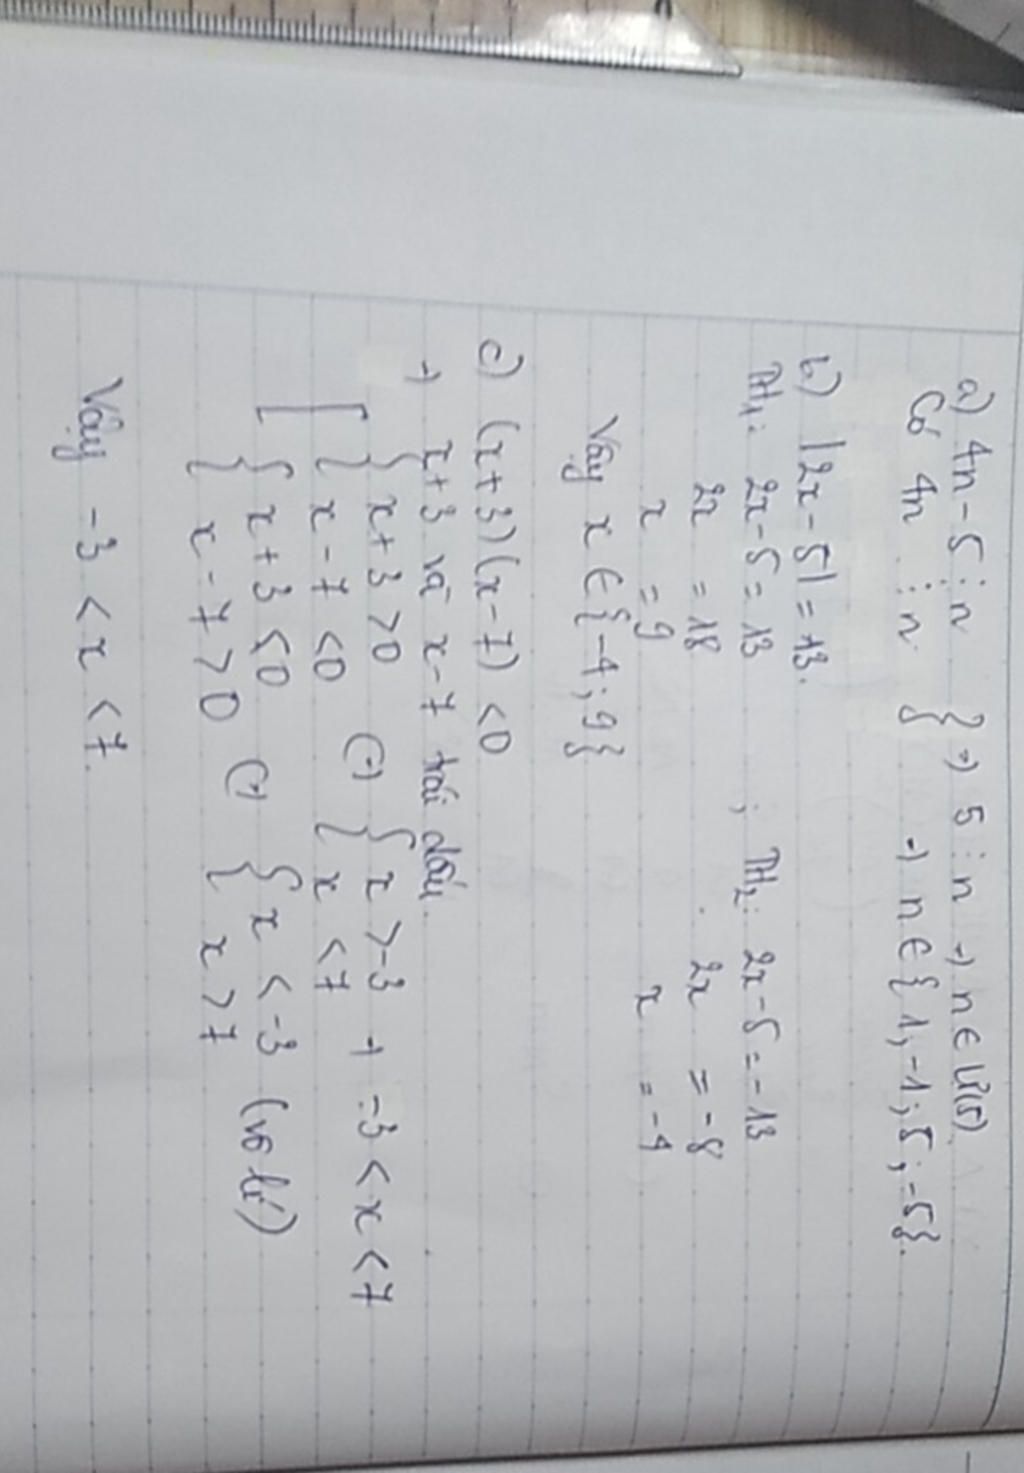 a) 4n - 5 ⋮ n } → 5 ⋮ n → n ∈ Ư(5)
Có 4n ⋮ n → n ∈ {1, -1; 5; -5}.
b) |2x - 5| = 13.
TH1: 2x - 5 = 13 ; TH2: 2x - 5 = -13
2x = 18 2x = -8
x = 9 x = -4
Vậy x ∈ {-4; 9}
c) (x+3)(x-7) < 0
→ x+3 và x-7 trái dấu.
[ { x+3 > 0 (→) { x > -3 → -3 < x < 7
x - 7 < 0 x < 7
{ x+3 < 0 (→) { x < -3 (vô lí)
x - 7 > 0 x > 7
Vậy -3 < x < 7.